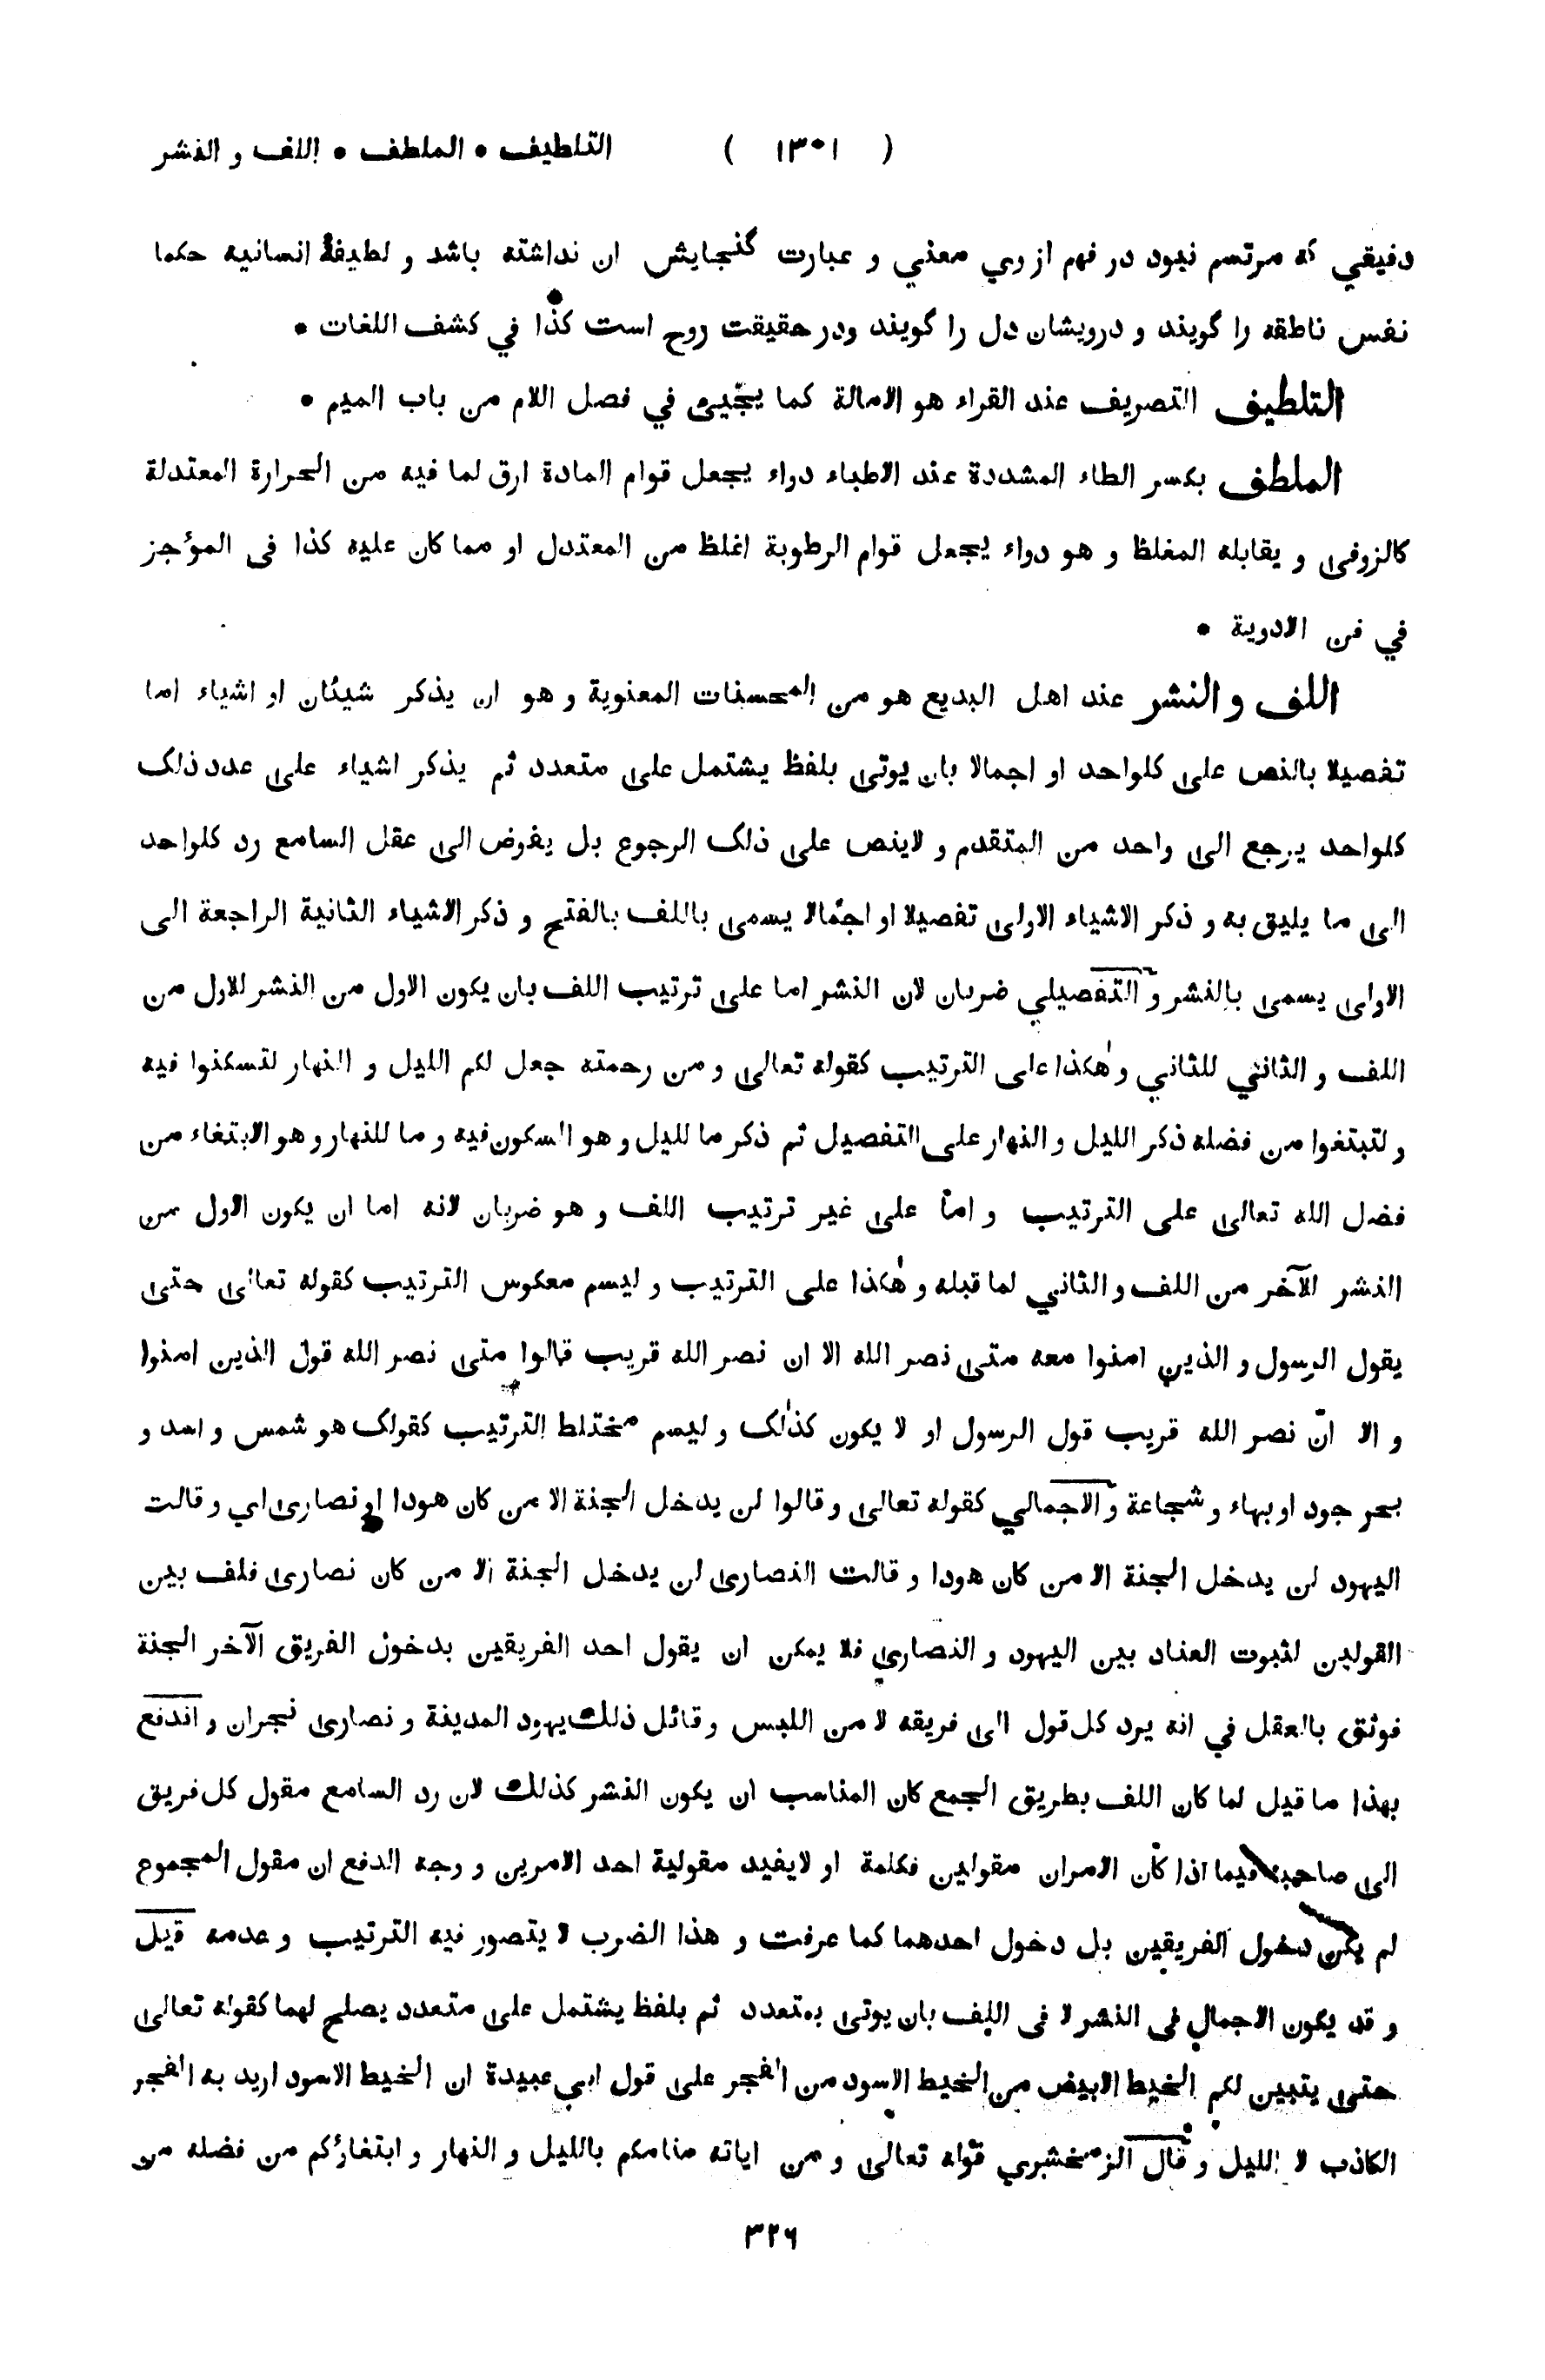 ( ١٣٠١ ) التلطيف • الملطف • اللف و النشر
دقيقي كه مرتسم نبود در فهم از وي معني و عبارت گنجايش ان نداشته باشد و لطيفهٔ انسانيه حكما
نفس ناطقه را گويند و درويشان دل را گويند ودر حقيقت روح است كذا في كشف اللغات •
التلطيف التصريف عند القراء هو الامالة كما يجيئ في فصل اللام من باب الميم •
الملطف بكسر الطاء المشددة عند الاطباء دواء يجعل قوام المادة ارق لما فيه من الحرارة المعتدلة
كالزوفى و يقابله المغلظ و هو دواء يجعل قوام الرطوبة اغلظ من المعتدل او مما كان عليه كذا فى المؤجز
في فن الادوية •
اللف و النشر عند اهل البديع هو من المحسنات المعنوية و هو ان يذكر شيئان او اشياء اما
تفصيلا بالنص على كلواحد او اجمالا بان يوتى بلفظ يشتمل على متعدد ثم يذكر اشياء على عدد ذلك
كلواحد يرجع الى واحد من المتقدم و لاينص على ذلك الرجوع بل يفوض الى عقل السامع رد كلواحد
الى ما يليق به و ذكر الاشياء الاولى تفصيلا او اجمالا يسمى باللف بالفتح و ذكر الاشياء الثانية الراجعة الى
الاولى يسمى بالنشر و التفصيلي ضربان لان النشر اما على ترتيب اللف بان يكون الاول من النشر للاول من
اللف و الثاني للثاني و هٰكذا على الترتيب كقوله تعالى و من رحمته جعل لكم الليل و النهار لتسكنوا فيه
و لتبتغوا من فضله ذكر الليل و النهار على التفصيل ثم ذكر ما لليل و هو السكون فيه و ما للنهار و هو الابتغاء من
فضل الله تعالى على الترتيب و اما على غير ترتيب اللف و هو ضربان لانه اما ان يكون الاول من
النشر للآخر من اللف و الثاني لما قبله و هٰكذا على الترتيب و ليسم معكوس الترتيب كقوله تعالى حتى
يقول الرسول و الذين امنوا معه متى نصر الله الا ان نصر الله قريب قالوا متى نصر الله قول الذين امنوا
و الا انّ نصر الله قريب قول الرسول او لا يكون كذٰلك و ليسم مختلط الترتيب كقولك هو شمس و اسد و
بحر جود او بهاء و شجاعة و الاجمالي كقوله تعالى و قالوا لن يدخل الجنة الا من كان هودا او نصارى اي و قالت
اليهود لن يدخل الجنة الا من كان هودا و قالت النصارى لن يدخل الجنة الا من كان نصارى فلف بين
القولين لثبوت العناد بين اليهود و النصارى فلا يمكن ان يقول احد الفريقين بدخول الفريق الآخر الجنة
فوثق بالعقل في انه يرد كل قول الى فريقه لا من اللبس و قائل ذلك يهود المدينة و نصارى نجران و اندفع
بهذا ما قيل لما كان اللف بطريق الجمع كان المناسب ان يكون النشر كذلك لان رد السامع مقول كل فريق
الى صاحبه فيما اذا كان الامران مقولين فكلمة او لايفيد مقولية احد الامرين و وجه الدفع ان مقول المجموع
لم يكن دخول الفريقين بل دخول احدهما كما عرفت و هذا الضرب لا يتصور فيه الترتيب و عدمه قيل
و قد يكون الاجمال فى النشر لا فى اللف بان يوتى بمتعدد ثم بلفظ يشتمل على متعدد يصلح لهما كقوله تعالى
حتى يتبين لكم الخيط الابيض من الخيط الاسود من الفجر على قول ابي عبيدة ان الخيط الاسود اريد به الفجر
الكاذب لا الليل و قال الزمخشري قوله تعالى و من اياته منامكم بالليل و النهار و ابتغاؤكم من فضله من
٣٢٦